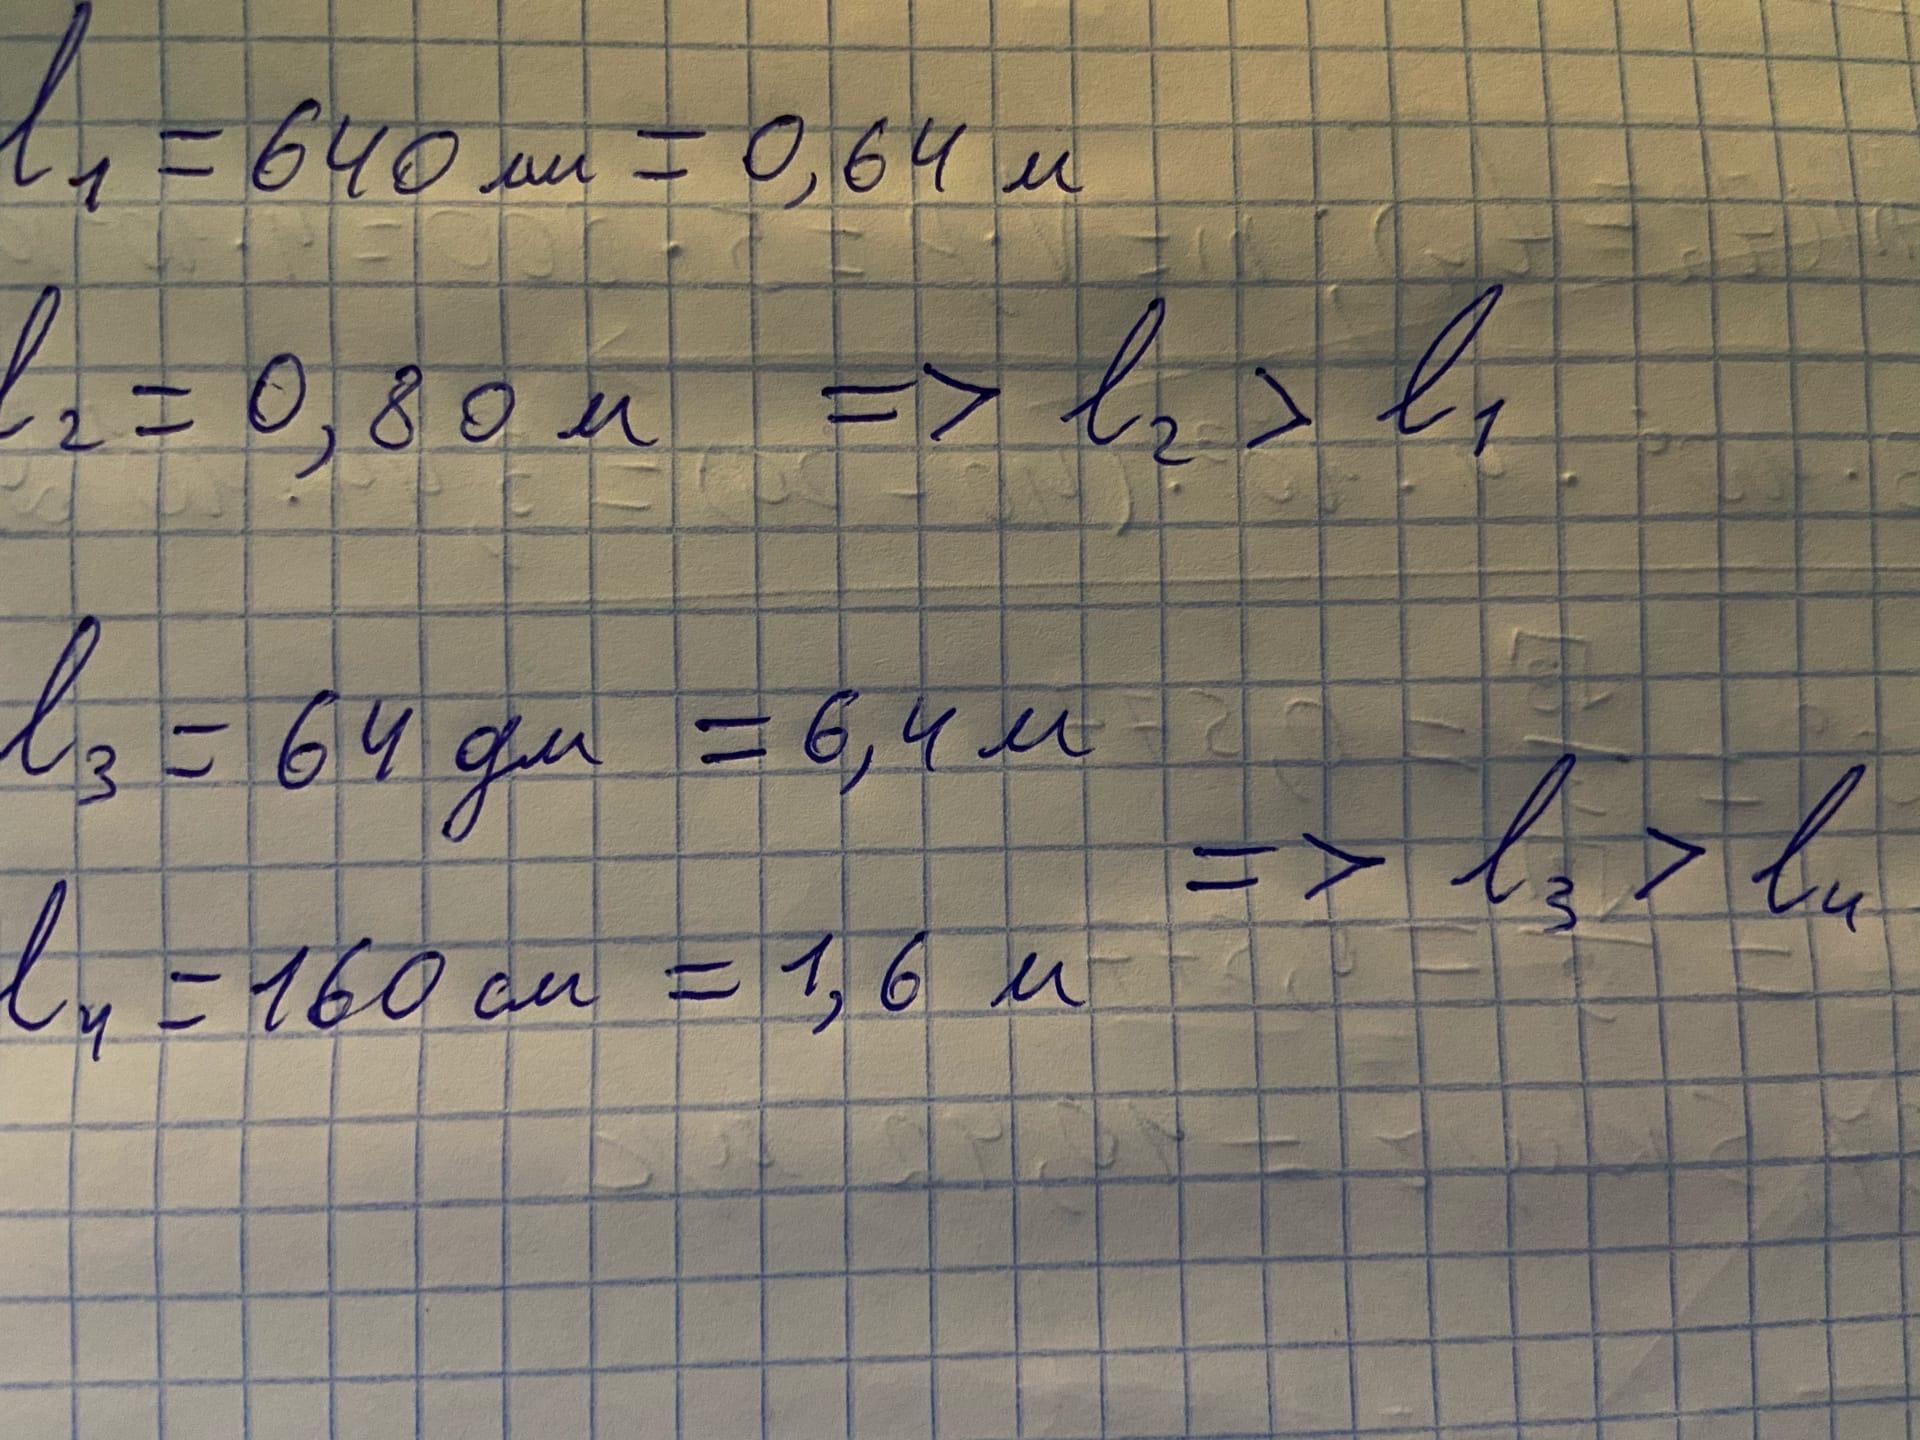 l₁ = 640 мм = 0,64 м
l₂ = 0,80 м => l₂ > l₁
l₃ = 64 дм = 6,4 м
=> l₃ > l₄
l₄ = 160 см = 1,6 м